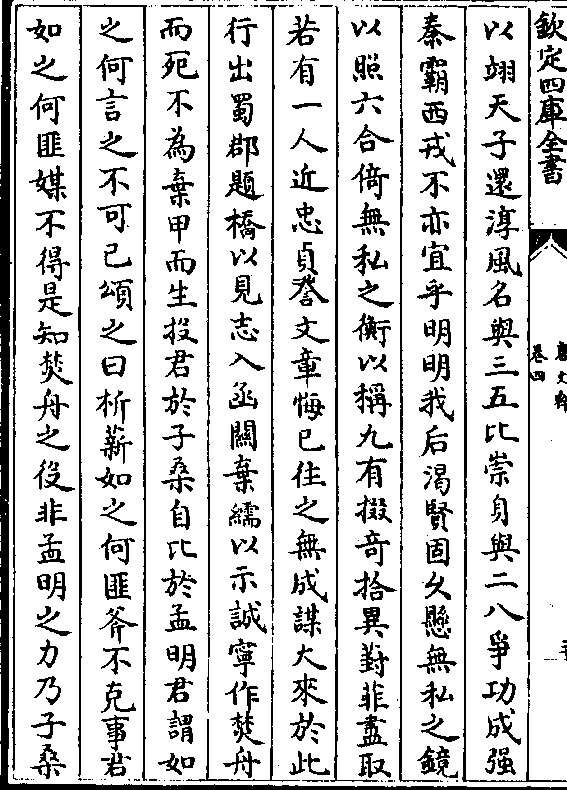 欽定四庫全書
唐文粹
卷四
以翊天子還淳風名與三五比崇身與二八爭功成强
秦霸西戎不亦宜乎明明我后渴賢固久懸無私之鏡
以照六合倚無私之衡以稱九有掇竒拾異葑菲盡取
若有一人近忠貞登文章悔已往之無成謀大來於此
行出蜀郡題橋以見志入函關棄繻以示誠寧作焚舟
而死不為棄甲而生投君於子桑自比於孟明君謂如
之何言之不可已頌之曰析薪如之何匪斧不克事君
如之何匪媒不得是知焚舟之役非孟明之力乃子桑